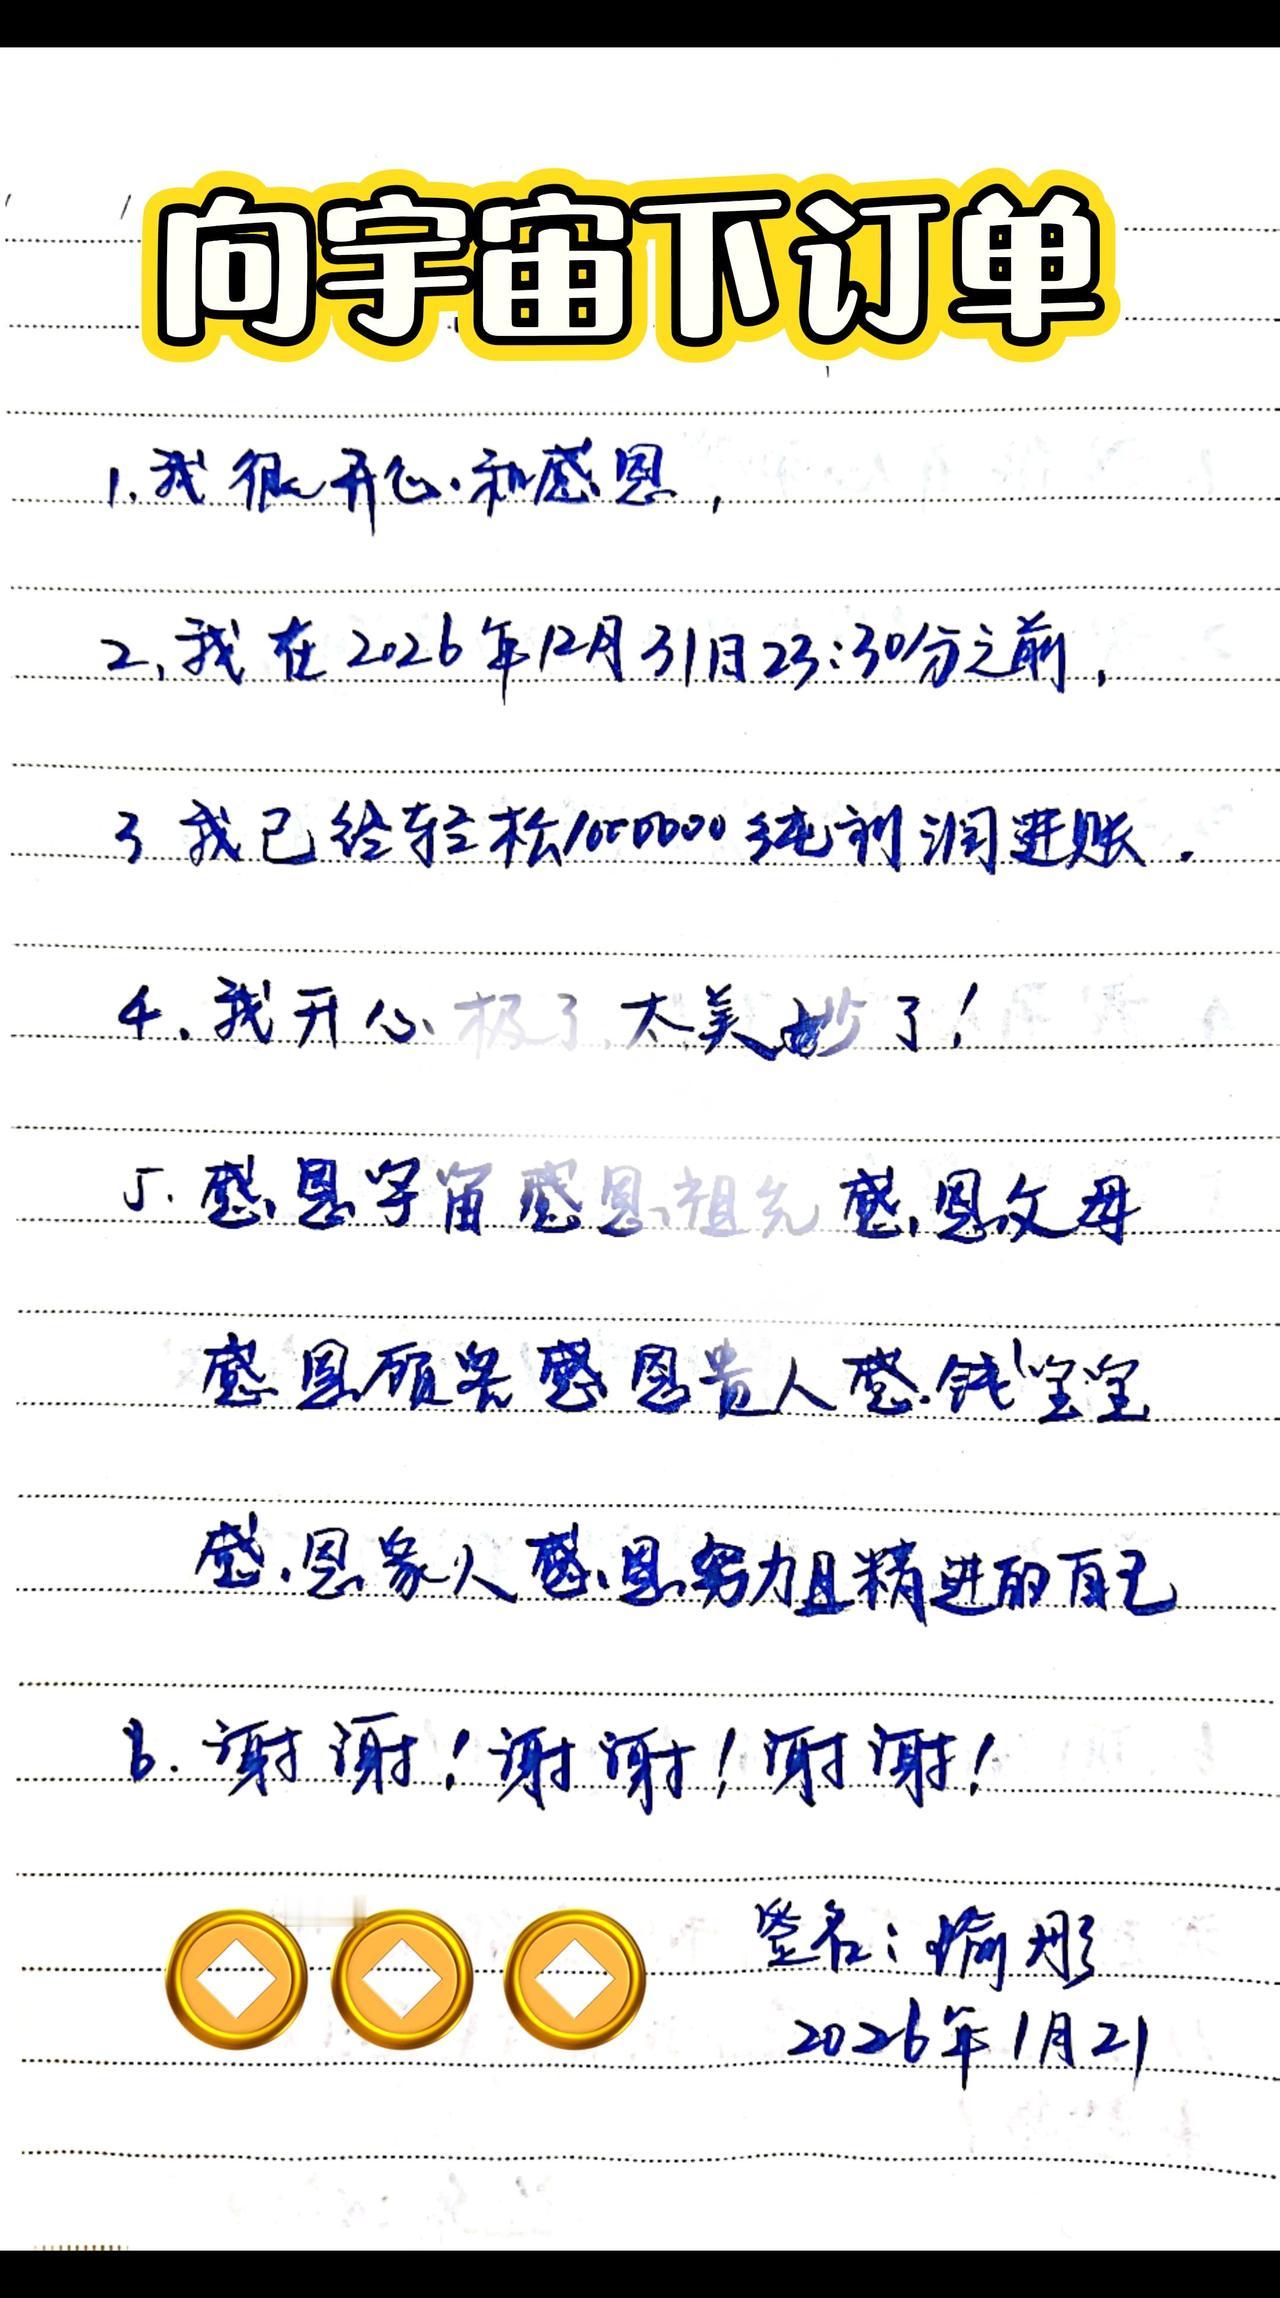 向宇宙下订单
1.我很开心和感恩,
2,我在2026年12月31日23:30分之前,
3 我已经轻松1000000纯利润进账.
4.我开心极了,太美妙了!
5.感恩宇宙感恩祖先 感恩父母
感恩顾客感恩贵人感钱宝宝
感恩家人感恩努力且精进的自己
6.谢谢!谢谢!谢谢!
签名:瑜彤
2026年1月21